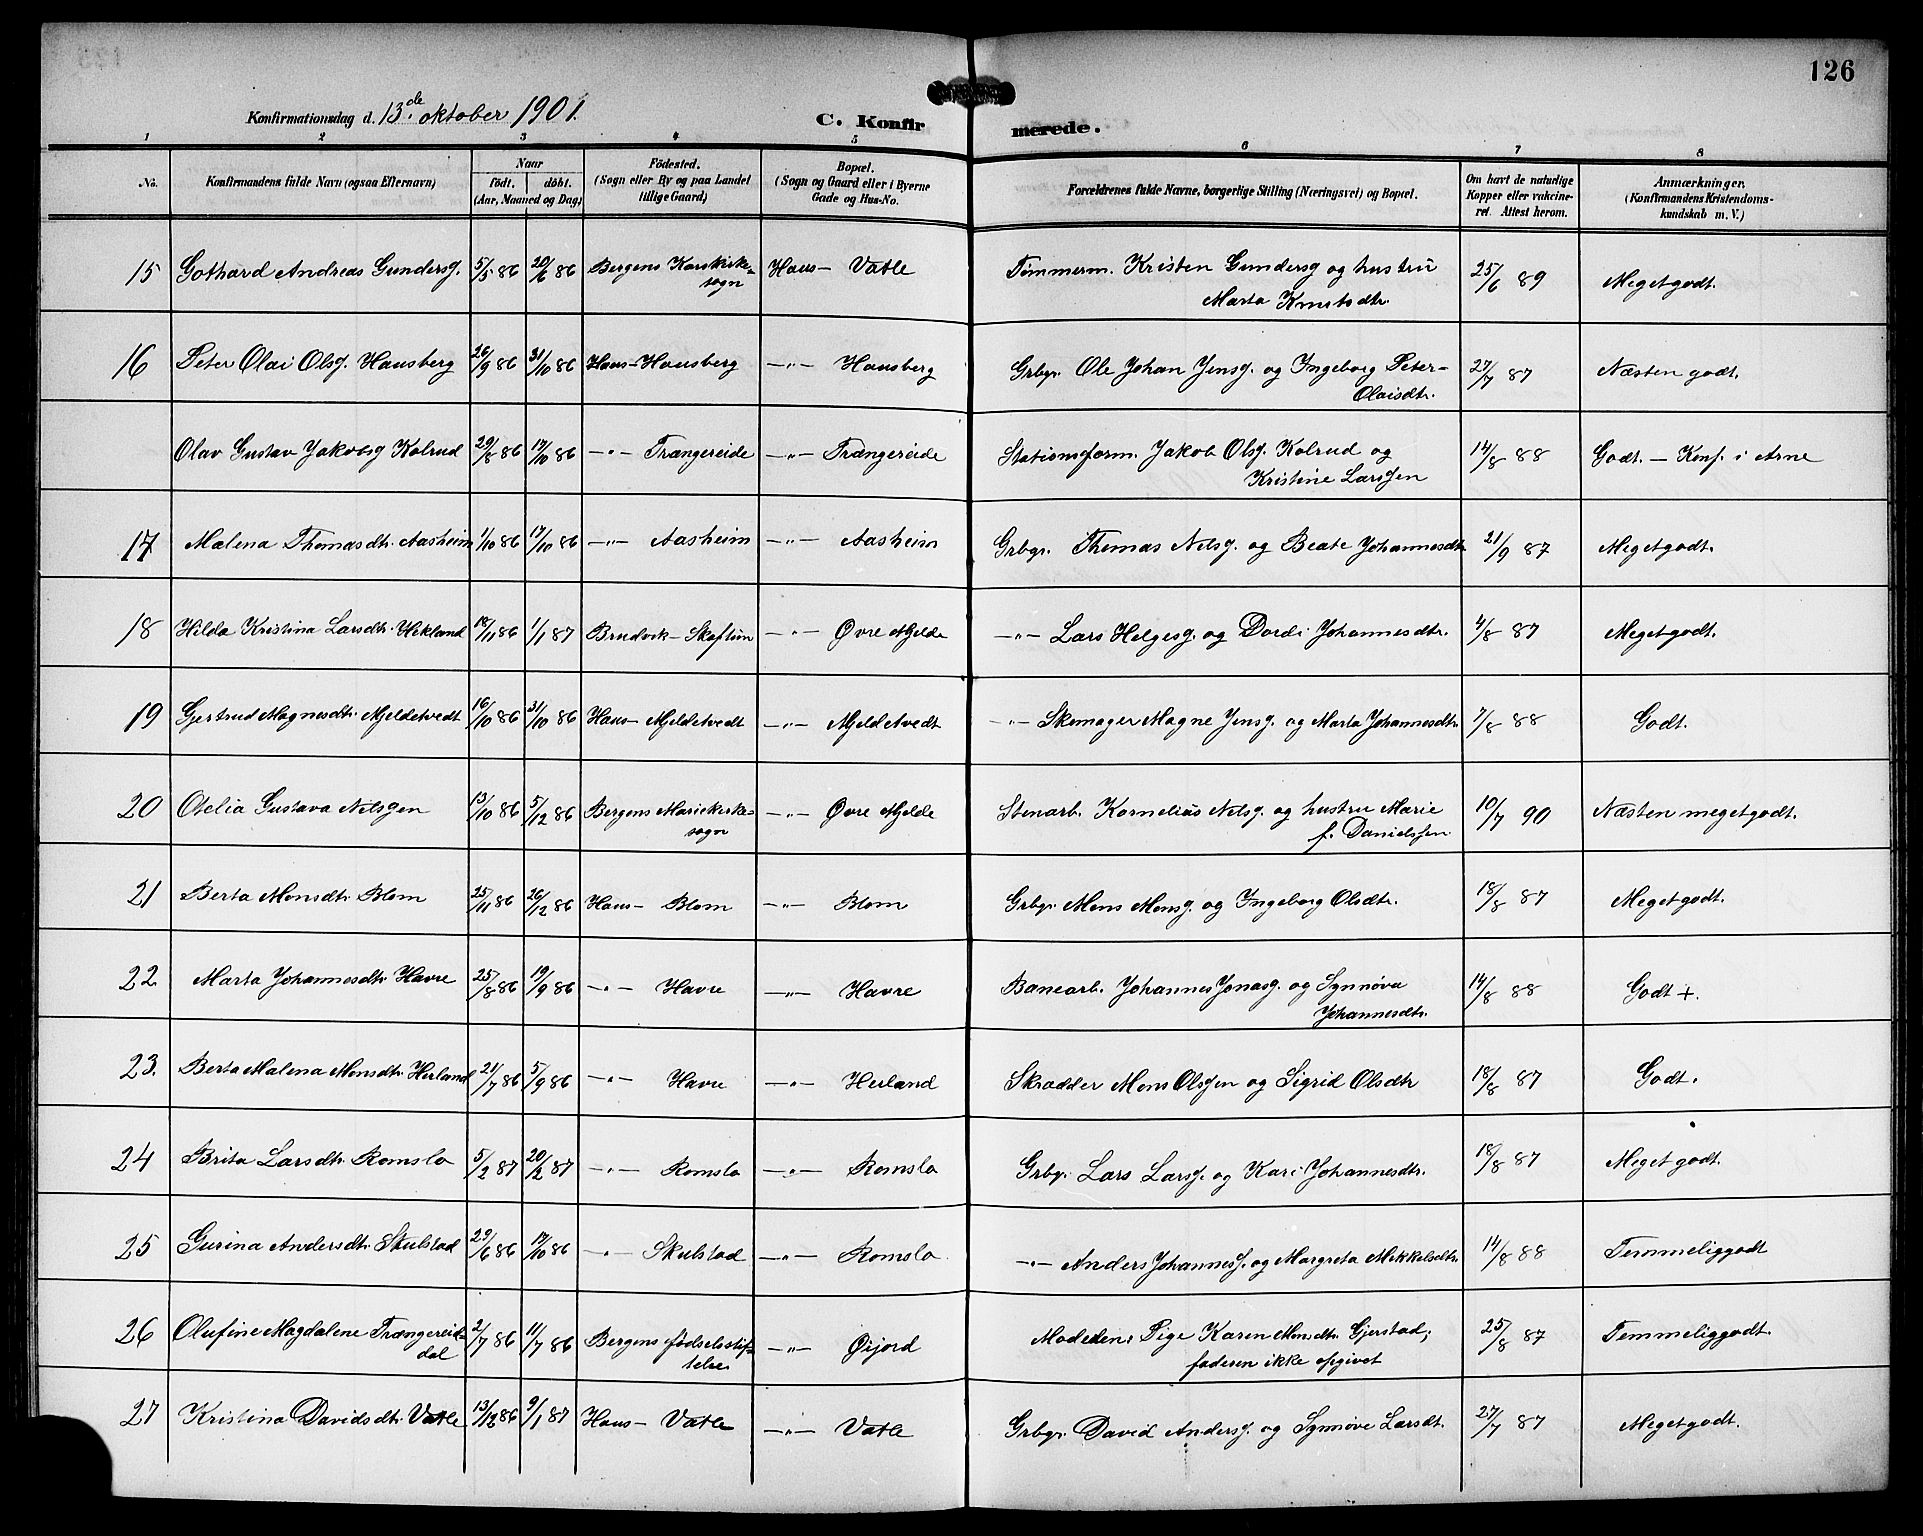 126
Konfirmationsdag d. 13.de oktober 1901.
C. Konfir merede.
1 2 3 4 5 6 7 8
No. Konfirmandens fulde Navn (ogsaa Efternavn) Naar födt. döbt. (Aar, Maaned og Dag) Födested. (Sogn eller By og paa Landet tillige Gaard) Bopæl. (Sogn og Gaard eller i Byerne Gade og Hus-No. Forældrenes fulde Navne, borgerlige Stilling (Næringsvei) og Bopæl. Om havt de naturlige Kopper eller vakcineret. Attest herom. Anmærkninger. (Konfirmandens Kristendomskundskab m. V.)
15 Gothard Andreas Gundersg. 5/5 86 20/6 86 Bergens Korskirke- Haus - Vatle Tømmerm. Kristen Gundersg og hustru 25/6 89 Megetgodt.
sogn Marta Knutsdtr.
16 Peter Olai Olsg. Hausberg 26/9 86 31/10 86 Haus - Hausberg —"— Hausberg Grbgr. Ole Johan Jensg. og Ingeborg Peter- 27/7 87 Næsten godt.
Olaisdtr.
Olav Gustav Jakobsg Kolrud 29/8 86 17/10 86 —"— Trængereide —"— Trængereide Stationsform. Jakob Olsg. Kolrud og 14/8 88 Godt. — Konf. i Arne
Kristine Larssen
17 Malena Thomasdtr. Aasheim 1/10 86 17/10 86 —"— Aasheim —"— Aasheim Grbgr. Thomas Nelsg. og Beate Johannesdtr 21/9 87 Megetgodt.
18 Hilda Kristina Larsdtr. Hekland 18/11 86 1/1 87 Brudvik - Skaftun —"— Øvre Mjelde —"— Lars Helgesg. og Dordi Johannesdtr. 4/8 87 Megetgodt.
19 Gjertrud Magnesdtr. Mjeldetvedt 16/10 86 31/10 86 Haus - Mjeldetvedt —"— Mjeldetvedt —"— Skomager Magne Jensg. og Marta Johannesdtr. 7/8 88 Godt.
20 Otelia Gustava Nelssen 13/10 86 5/12 86 Bergens Mariekirke- —"— Øvre Mjelde Stenarb. Kornelius Nelsg. og hustru Marie 10/7 90 Næsten megetgodt.
sogn f. Danielssen
21 Berta Monsdtr. Blom 25/11 86 26/12 86 Haus - Blom —"— Blom Grbgr. Mons Monsg. og Ingeborg Olsdtr. 18/8 87 Megetgodt.
22. Marta Johannesdtr. Havre 25/8 86 19/9 86 —"— Havre —"— Havre Banearb. Johannes Jonasg. og Synnøva 14/8 88 Godt +.
Johannesdtr.
23. Berta Malena Monsdtr. Herland 21/7 86 5/9 86 —"— Havre —"— Herland Skrædder Mons Olssen og Sigrid Olsdtr 18/8 87 Godt.
24 Brita Larsdtr. Romslo 5/2 87 20/2 87 —"— Romslo —"— Romslo Grbgr. Lars Larsg. og Kari Johannesdtr. 18/8 87 Megetgodt.
25 Gurina Andersdtr. Skulstad 29/6 86 17/10 86 —"— Skulstad —"— Romslo —"— Anders Johannesg. og Margreta Mikkelsdtr. 14/8 88 Temmeliggodt
26 Olufine Magdalene Trængereid- 2/7 86 11/7 86 Bergens fødselsstif- —"— Øijord Moderen: Pige Karen Monsdtr. Gjerstad; 25/8 87 Temmeliggodt.
dal telse faderen ikke opgivet
27 Kristina Davidsdtr. Vatle 13/12 86 9/1 87 Haus - Vatle —"— Vatle Grbgr. David Andersg. og Synnøve Larsdt. 27/7 87 Megetgodt.